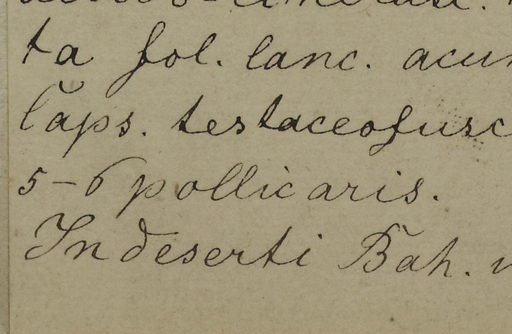 ta fol. lanc. acum
Caps. testaceofusc
5-6 pollicaris.
In deserti Bah.